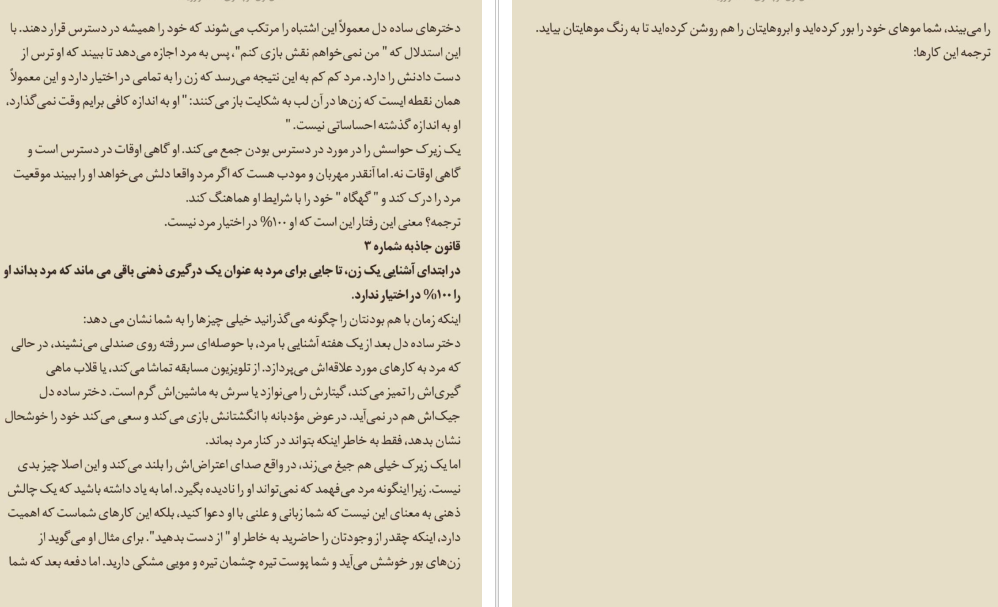 دخترهای ساده دل معمولاً این اشتباه را مرتکب می‌شوند که خود را همیشه در دسترس قرار دهند. با
این استدلال که " من نمی‌خواهم نقش بازی کنم"، پس به مرد اجازه می‌دهد تا ببیند که او ترس از
دست دادنش را دارد. مرد کم کم به این نتیجه می‌رسد که زن را به تمامی در اختیار دارد و این معمولاً
همان نقطه ایست که زن‌ها در آن لب به شکایت باز می‌کنند: " او به اندازه کافی برایم وقت نمی‌گذارد،
او به اندازه گذشته احساساتی نیست. "
یک زیرک حواسش را در مورد در دسترس بودن جمع می‌کند. او گاهی اوقات در دسترس است و
گاهی اوقات نه. اما آنقدر مهربان و مودب هست که اگر مرد واقعا دلش می‌خواهد او را ببیند موقعیت
مرد را درک کند و " گهگاه " خود را با شرایط او هماهنگ کند.
ترجمه؟ معنی این رفتار این است که او ۱۰۰% در اختیار مرد نیست.
قانون جاذبه شماره ۳
در ابتدای آشنایی یک زن، تا جایی برای مرد به عنوان یک درگیری ذهنی باقی می ماند که مرد بداند او
را ۱۰۰% در اختیار ندارد.
اینکه زمان با هم بودنتان را چگونه می‌گذرانید خیلی چیزها را به شما نشان می دهد:
دختر ساده دل بعد از یک هفته آشنایی با مرد، با حوصله‌ای سر رفته روی صندلی می‌نشیند، در حالی
که مرد به کارهای مورد علاقه‌اش می‌پردازد. از تلویزیون مسابقه تماشا می‌کند، یا قلاب ماهی
گیری‌اش را تمیز می‌کند، گیتارش را می‌نوازد یا سرش به ماشین‌اش گرم است. دختر ساده دل
جیک‌اش هم در نمی‌آید. در عوض مؤدبانه با انگشتانش بازی می‌کند و سعی می‌کند خود را خوشحال
نشان بدهد، فقط به خاطر اینکه بتواند در کنار مرد بماند.
اما یک زیرک خیلی هم جیغ می‌زند، در واقع صدای اعتراض‌اش را بلند می‌کند و این اصلا چیز بدی
نیست. زیرا اینگونه مرد می‌فهمد که نمی‌تواند او را نادیده بگیرد. اما به یاد داشته باشید که یک چالش
ذهنی به معنای این نیست که شما زبانی و علنی با او دعوا کنید، بلکه این کارهای شماست که اهمیت
دارد، اینکه چقدر از وجودتان را حاضرید به خاطر او " از دست بدهید". برای مثال او می‌گوید از
زن‌های بور خوشش می‌آید و شما پوست تیره چشمان تیره و مویی مشکی دارید. اما دفعه بعد که شما
را می‌بیند، شما موهای خود را بور کرده‌اید و ابروهایتان را هم روشن کرده‌اید تا به رنگ موهایتان بیاید.
ترجمه این کارها: